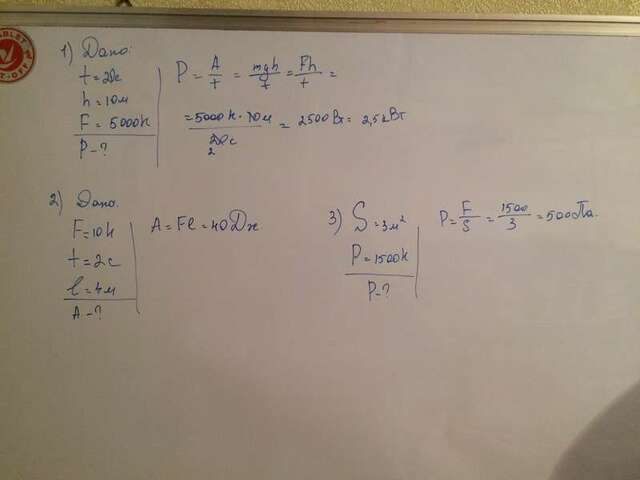 1) Дано:
t = 20с
h = 10м
F = 5000н
P - ?
P = A/t = mgh/t = Fh/t =
= 5000н · 10м / 20с = 2500Вт = 2,5кВт
2
2) Дано.
F = 10н
t = 2с
l = 4м
A - ?
A = Fl = 40 Дж
3) S = 3м²
P = 1500н
P - ?
P = F/S = 1500/3 = 500Па.